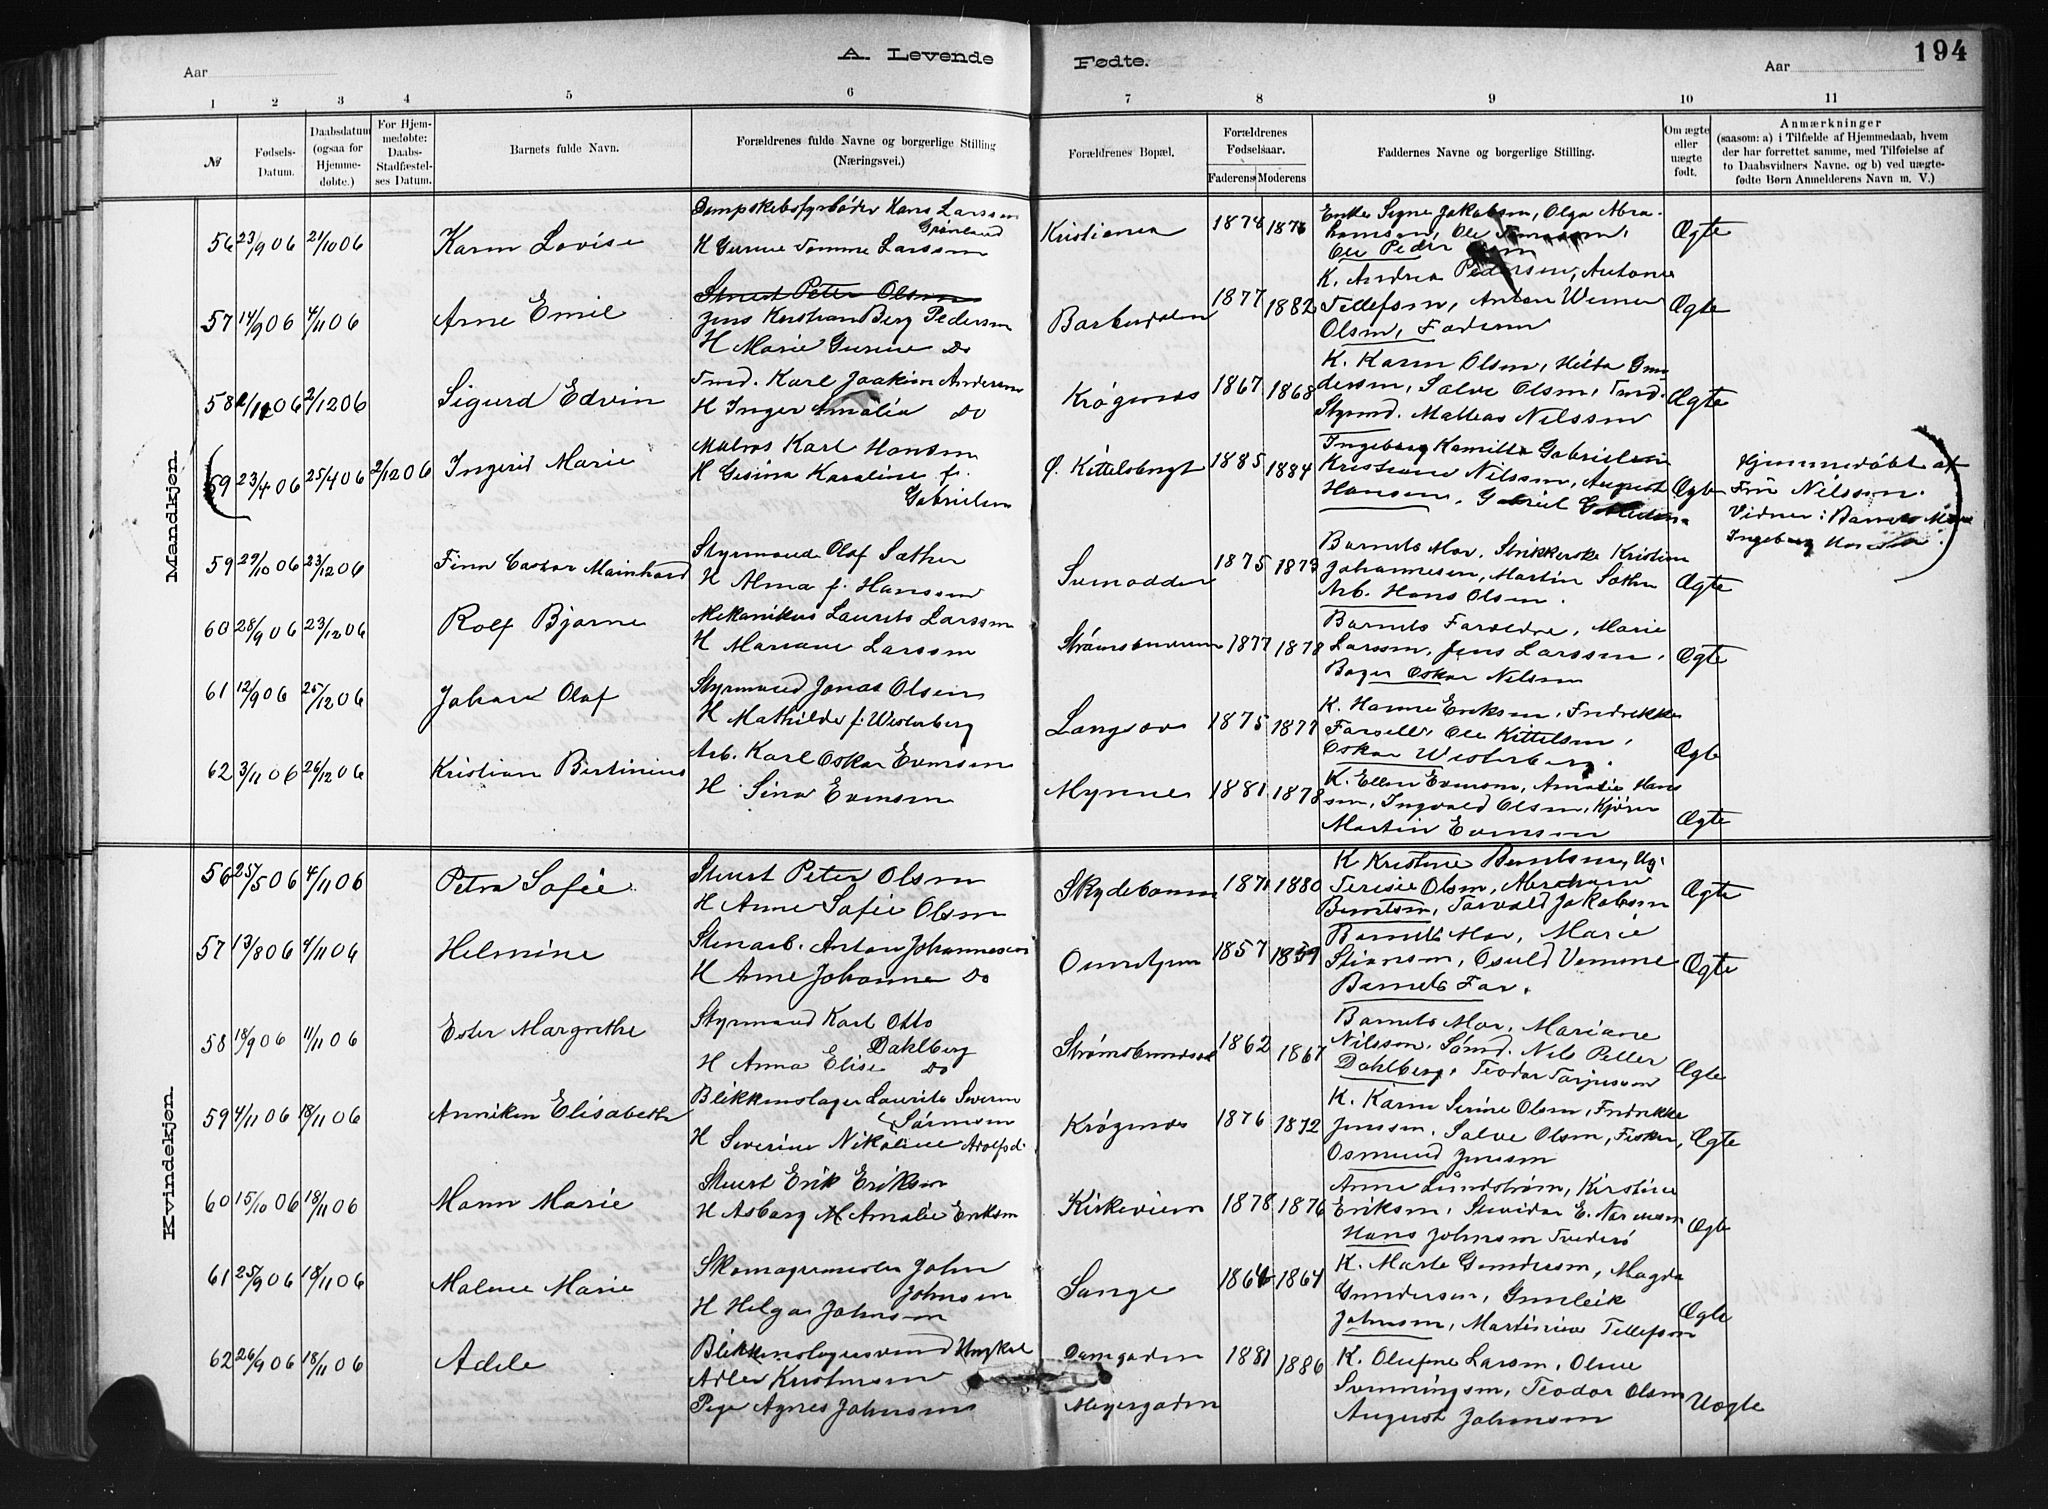 A. Levende Fødte. 194
Aar Aar
1 2 3 4 5 6 7 8 9 10 11
№
Fødsels-Datum.
Daabsdatum (ogsaa for Hjemmedøbte.)
For Hjemmedøbte: Daabs-Stadfæstelses Datum.
Barnets fulde Navn.
Forældrenes fulde Navne og borgerlige Stilling (Næringsvei.)
Forældrenes Bopæl.
Forældrenes Fødselsaar.
Faderens Moderens
Faddernes Navne og borgerlige Stilling.
Om ægte eller uægte født.
Anmærkninger
(saasom: a) i Tilfælde af Hjemmedaab, hvem
der har forrettet samme, med Tilføielse af
to Daabsvidners Navne, og b) ved uægte-
fødte Børn Anmelderens Navn m. V.)
Mandkjøn.
56 23/9 06 21/10 06 Karen Lovise
Hans Larssen
Grønland
H Gurine Tomine Larssen
Kristiania 1874
Enke Signe Jakobsen, Olga Abra-
hamsen, Ole
Ole Peder
Ægte
57 14/9 06 4/11 06 Arne Emil
Stuert Peter Olsen
Jens Kristian Berg Pedersen
H Marie Gurine Do
Barbudalen 1877 1882
K. Andrea Pedersen, Antonie
Tellefsen, Anton Werner
Olsen, Faderen
Ægte
58 2/12 06 Sigurd Edvin
Tmd. Karl Joakim Andersen
H Inger Amalia Do
Krøgenes 1867 1868
K. Karen Olsen, Hilda Gun-
dersen, Salve Olsen, Tmd.
Styrmd. Mathias Nilssen
Ægte
59 23/4 06 25/4 06 2/12 06 Ingerid Marie
Matros Karl Hansen
H Gesina Karoline f.
Gabrielsen
Ø. Kittelsbugt 1885 1884
Ingeborg Kamilla Gabrielsen
Kristiane Nilssen, August
Hansen, Gabriel
Ægte
Hjemmedøbt af
Fru Nilsson.
Vidner: Barnets Mor
Ingeborg
59 29/10 06 23/12 06 Finn Caspar Mainhard
Styrmand Olaf Sæther
H Alma f. Hanssen
Svenodden 1875 1873
Barnets Mor, Strikkerske Kristine
Johannesen, Martin Sæther
Arb. Hans Olsen.
Ægte
60 28/9 06 23/12 06 Rolf Bjarne
Mekanikus Laurits Larssen
H Mariane Larssen
Strømsbuveien 1877 1878
Barnets Forældre, Marie
Larssen, Jens Larssen,
Bager Oskar Nilsen
Ægte
61 12/9 06 25/12 06 Johan Olaf
Styrmand Jonas Olsen
H Mathilde f. Westerberg
Langsæv 1875 1877
K. Hanne Eriksen, Fredrikke
Farsell, Ole Kittelsen,
Oskar Westerberg.
Ægte
62 3/11 06 26/12 06 Kristian Bertinius
Arb. Karl Oskar Evensen
H Sina Evensen
Myrene 1881 1878
K. Ellen Evensen, Amalie Hans
sen, Ingvald Olsen, Kjøren
Martin Evensen
Ægte
Kvindekjøn.
56 25/5 06 4/11 06 Petra Sofie
Stuert Peter Olsen
H Anne Sofie Olsen
Skydebanen 1871 1880
K Kristine Berntsen, Ug.
Teresie Olsen, Abraham
Berntsen, Torvald Jakobsen
Ægte
57 13/8 06 4/11 06 Helmine
Stenarb. Anton Johannesen
H Anne Johanne Do
1857 1859
Barnets Mor, Marie
Stiansen, Osuld Vemme
Barnets Far.
Ægte
58 18/9 06 11/11 06 Ester Margrethe
Styrmand Karl Otto
Dahlberg
H Anna Elise Do
Strømsbunes 1862 1867
Barnets Mor, Mariane
Nilsson, Sømd. Nils Petter
Dahlberg, Teodor Tarjussen
Ægte
59 4/11 06 18/11 06 Anniken Elisabeth
Blikkenslager Laurits Severin
Sørensen
H Severine Nikoline Adolfsd.
Krøgenes 1876 1872
K. Karen Serine Olsen, Fredrikke
Jenssen, Salve Olsen, Fisker,
Osmund Jenssen
Ægte
60 15/10 06 18/11 06 Marie
Stuert Erik Eriksen
H Asborg M Amalie Eriksen
Kirkeveien 1878 1876
Anne Lundstrøm, Kirstine
Eriksen, Stuvidar E.
Hans Johnsen Tvedersø
Ægte
61 25/9 06 18/11 06 Malene Marie
Skomagermester John
Johnsen
H Helga Johnsen
Songe 1864 1864
K. Marte Gundersen, Magda
Gundersen, Gunleik
Johnsen, Martinius Tellefsen
Ægte
62 26/9 06 18/11 06 Adele
Blikkenslagersvend Ungkar
Adler Kristensen
Pige Agnes Johnsen
Damgaden
Meyergaden 1881 1886
K. Olufine Larsen, Oluve
Svenningsen, Teodor Olsen
August Johnsen
Uægte